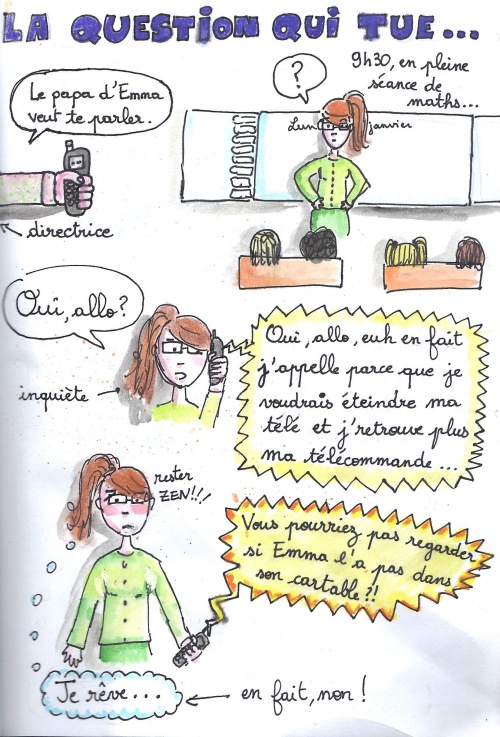 LA QUESTION QUI TUE...
Le papa d'Emma
veut te parler.
directrice
?
9h30, en pleine
séance de
maths...
Lun
janvier
Oui, allo?
inquiète
Oui, allo, euh en fait
j'appelle parce que je
voudrais éteindre ma
télé et j'retrouve plus
ma télécommande...
rester
ZEN!!!
Vous pourriez pas regarder
si Emma l'a pas dans
son cartable?!!
Je rêve...
en fait, non!